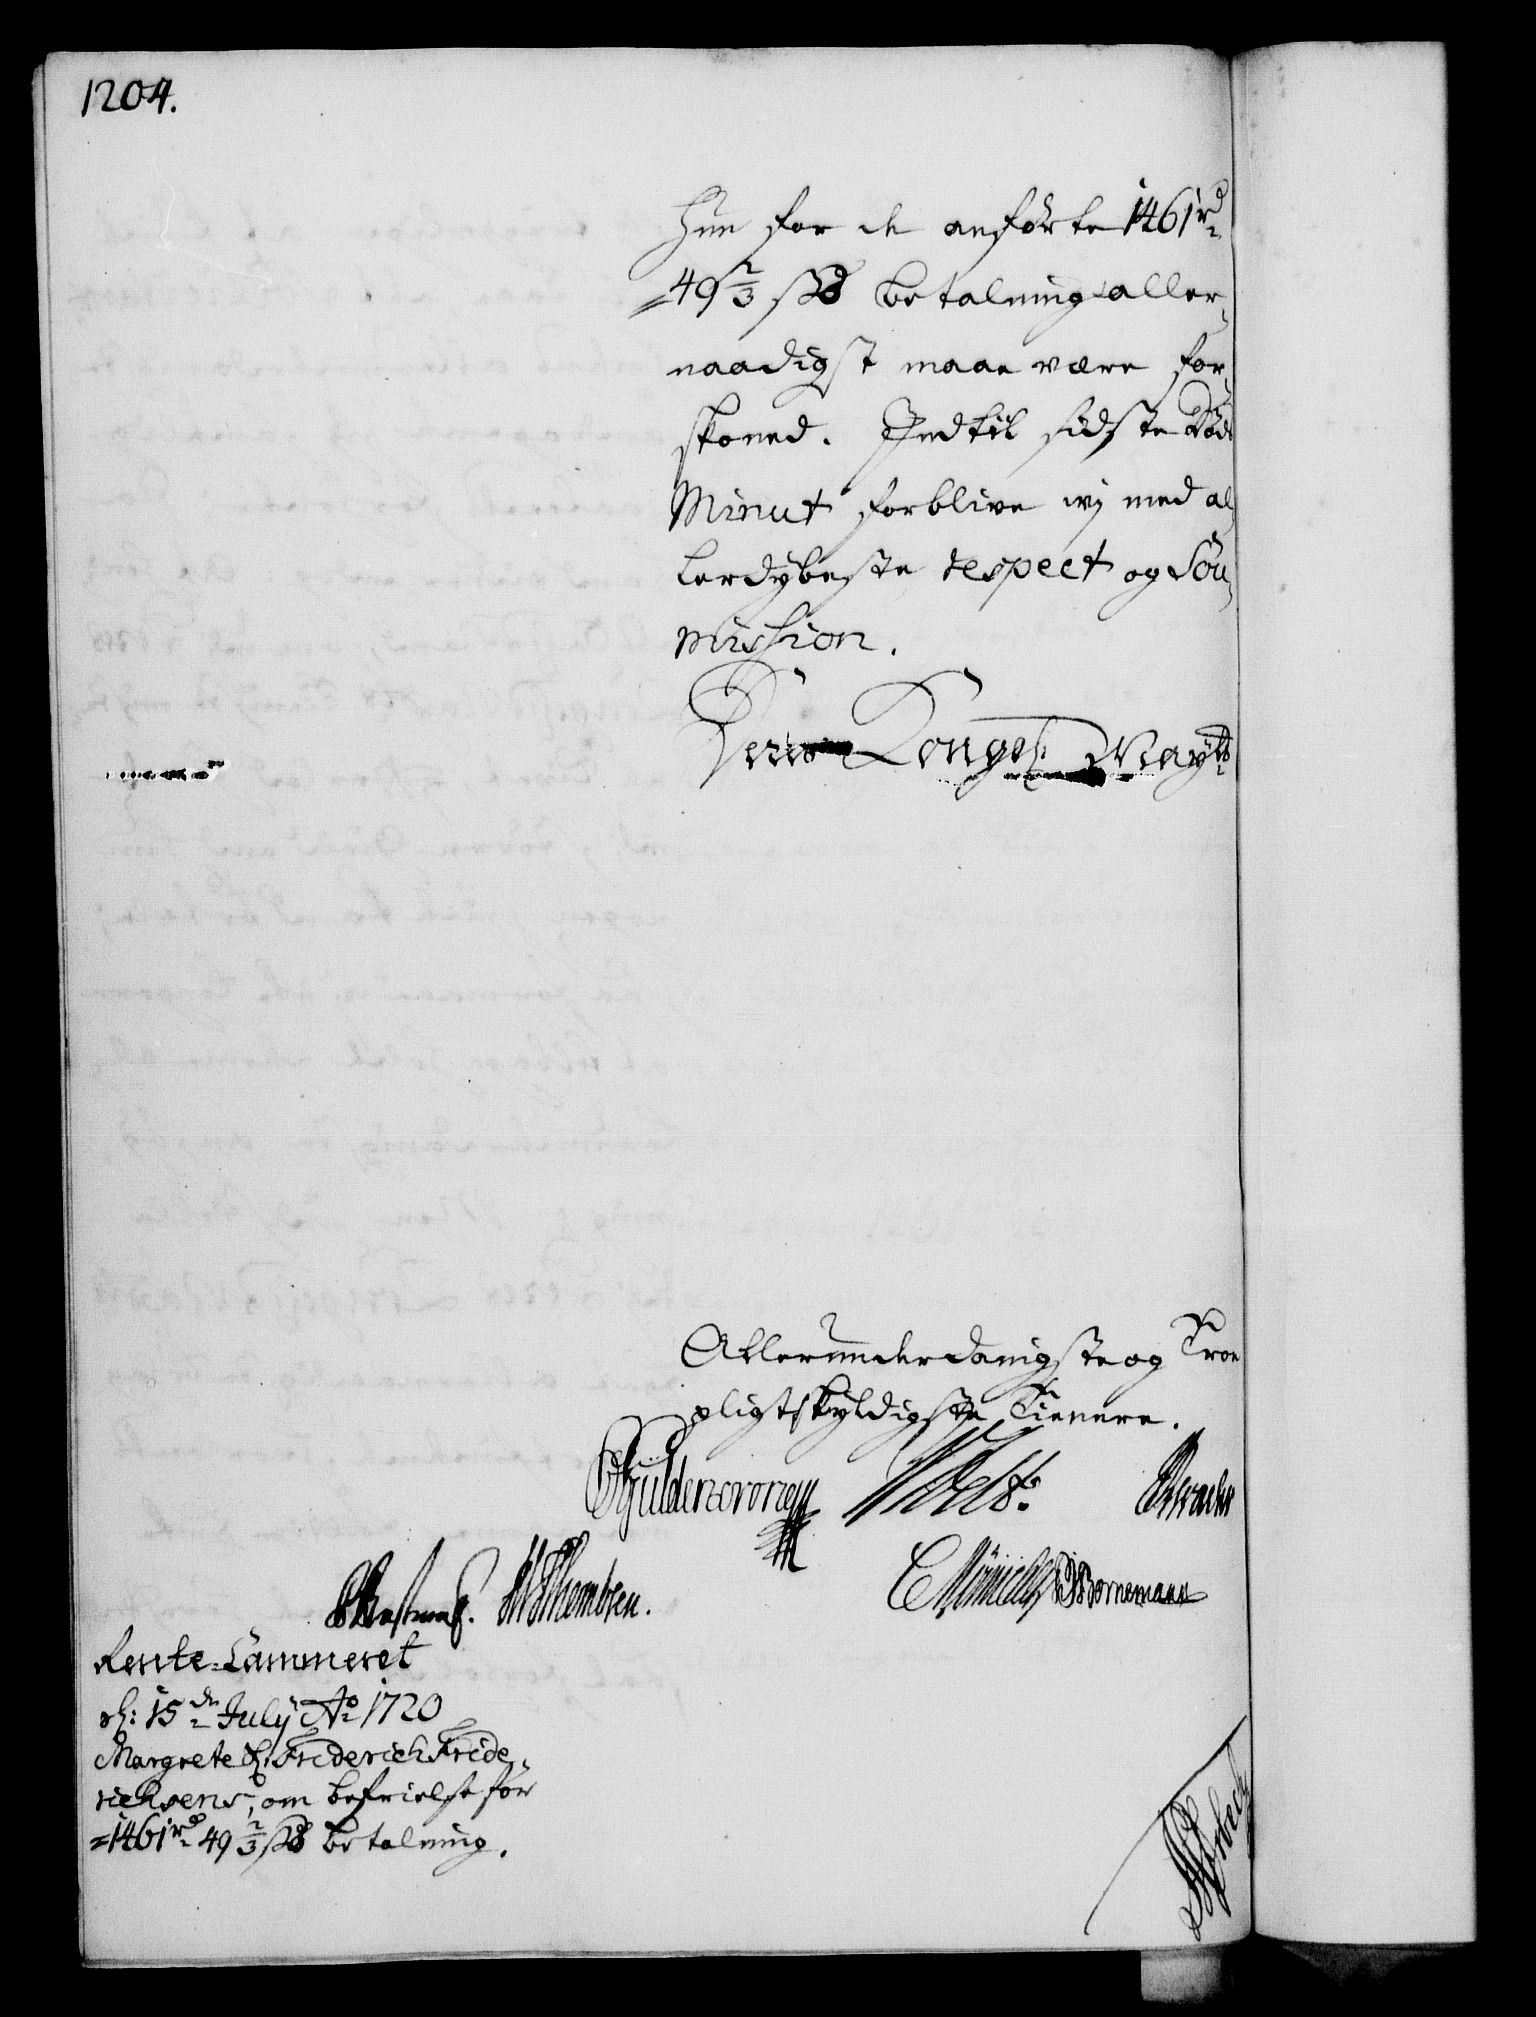 1204.
hun for de anførte 1461 rd
49 2/3 sz betalning aller-
naadigst maae være for-
skoned. Indtil sidste Døds
Minut forblive wj med al-
lerdybeste respect og Sou-
mission.
Deres Kongel: Mayts
Allerunderdanigste og Troe
pligtskyldigste Tienere.
Güldencrone
CMünnich Bornemann
Thombsen.
Rente-Cammeret
d: 15de July Ao 1720
Margrete Sl: Friderich Fride-
richsens, om befrielse for
1461 rd 49 2/3 sz betalning.